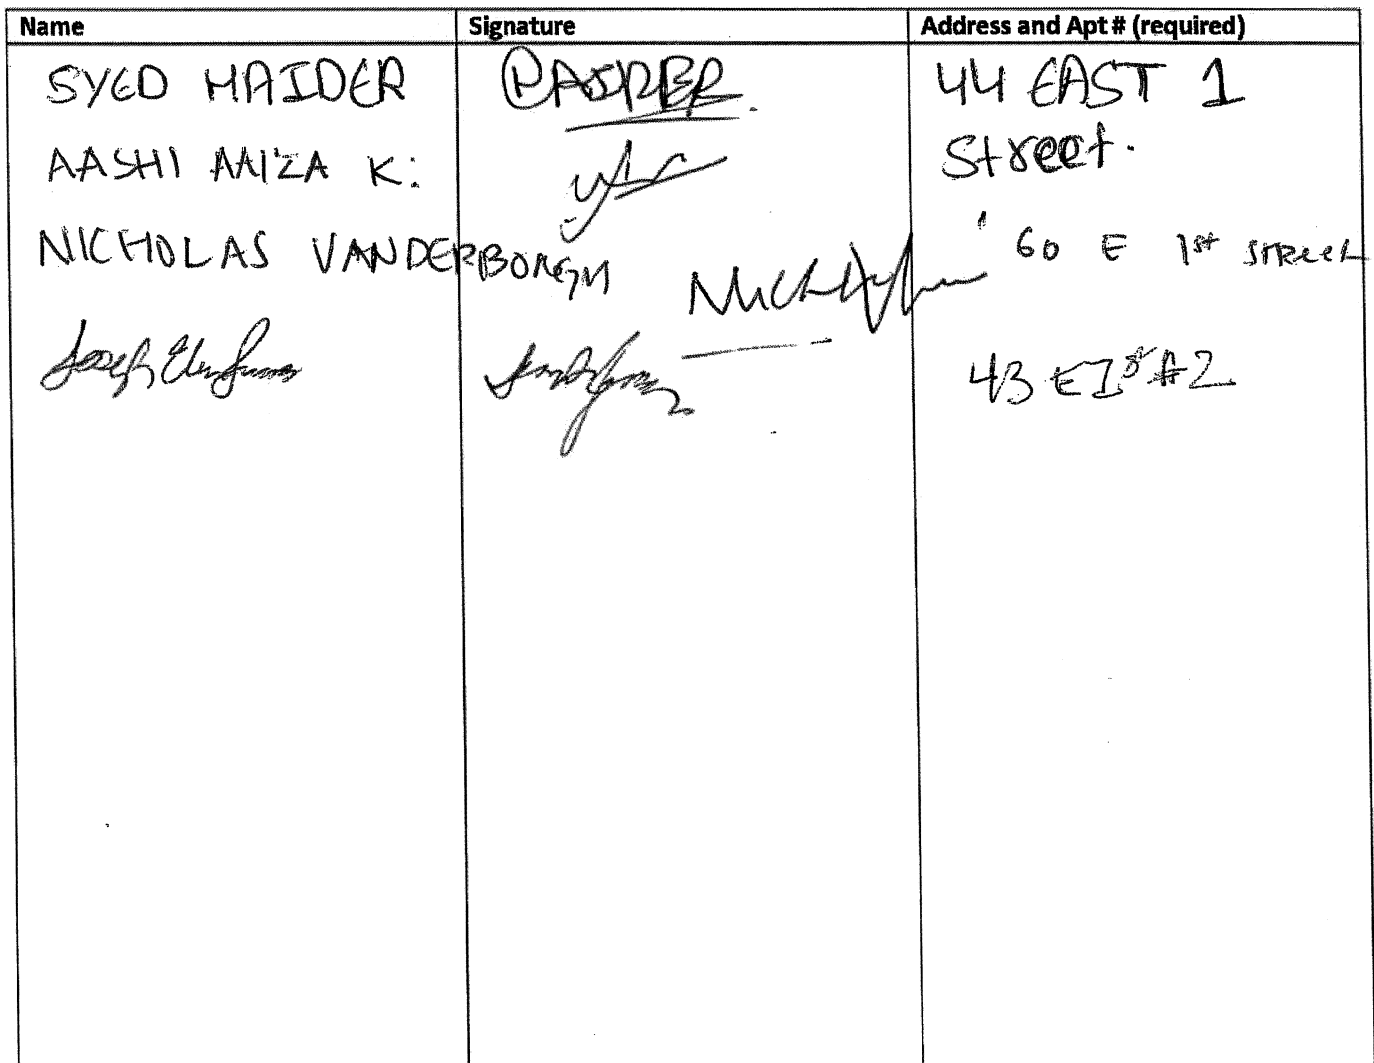 Name Signature Address and Apt # (required)
SYED HAIDER 44 EAST 1
AASHI AAIZA K. Street.
NICHOLAS VANDERBORGH 60 E 1st STREET
Joseph 43 E 1st #2